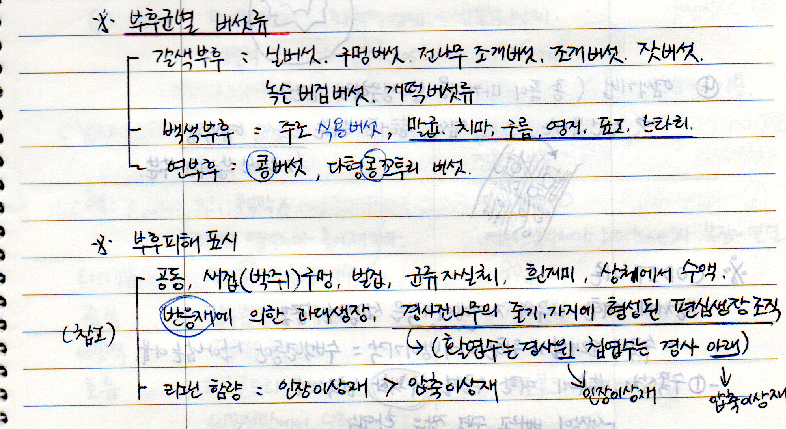 ※ 부후균별 버섯류
갈색부후 : 실버섯, 구멍버섯, 전나무 조개버섯, 조개버섯, 잣버섯,
녹슨버짐버섯, 개떡버섯류
백색부후 = 주로 식용버섯, 말굽, 치마, 구름, 영지, 표고, 느타리.
연부후 : 콩버섯, 다형콩꼬투리 버섯.
※ 부후피해 표시
공동, 새집(박쥐)구멍, 벌집, 균류자실체, 흰개미, 상처에서 수액,
반응재에 의한 과대생장, 경사진나무의 줄기, 가지에 형성된 편심생장 조직
(참고)
→ (활엽수는 경사 위, 침엽수는 경사 아래)
리그닌 함량 = 인장이상재 > 압축이상재
인장이상재
압축이상재